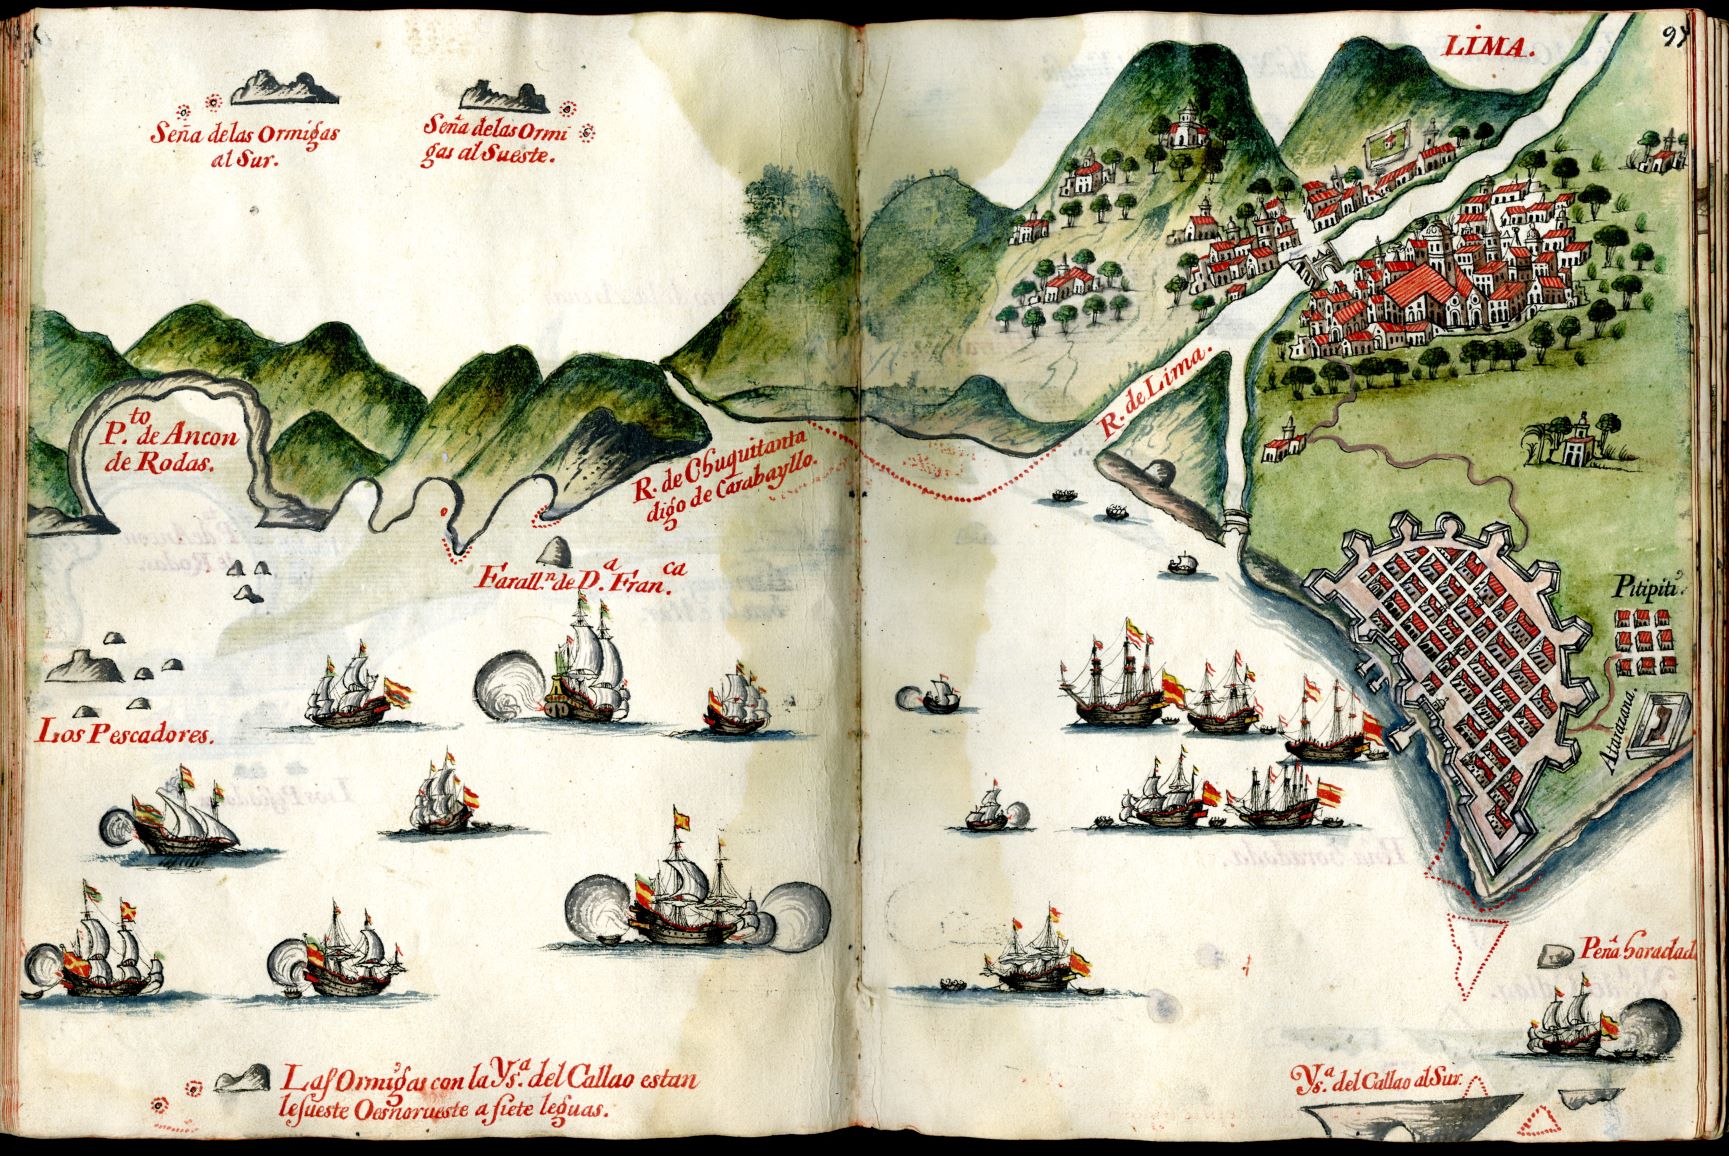 97
LIMA.
Seña delas Ormigas
al Sur.
Señ.ᵃ delas Ormi
gas al Sueste.
P.ᵗᵒ de Ancon
de Rodas.
R. de Chuquitanta
digo de Carabayllo.
R. de Lima.
Farall.ⁿ de D.ᵃ Fran.ᶜᵃ
Pitipiti.
Atarazana.
Los Pescadores.
Peñ.ᵃ horadad
Las Ormigas con la Ys.ᵃ del Callao estan
lesueste Oesnorueste a siete leguas.
Ys.ᵃ del Callao al Sur.